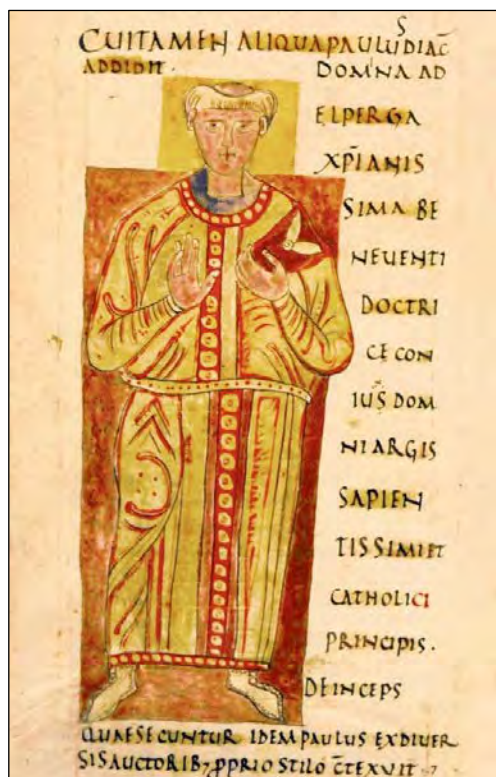 CUITAMEN ALIQUA PAULUS DIAC̄
ADDIDIT. DOMINA AD
ELPERGA
XP̄IANIS
SIMA BE
NEVENTI
DOCTRI
CE CON
IUS DOM
NI ARGIS
SAPIEN
TISSIMI ET
CATHOLICI
PRINCIPIS.
DEINCEPS
QUAE SECUNTUR IDEM PAULUS EX DIVER
SIS AUCTORIB; PPRIO STILO C̄TEXUIT